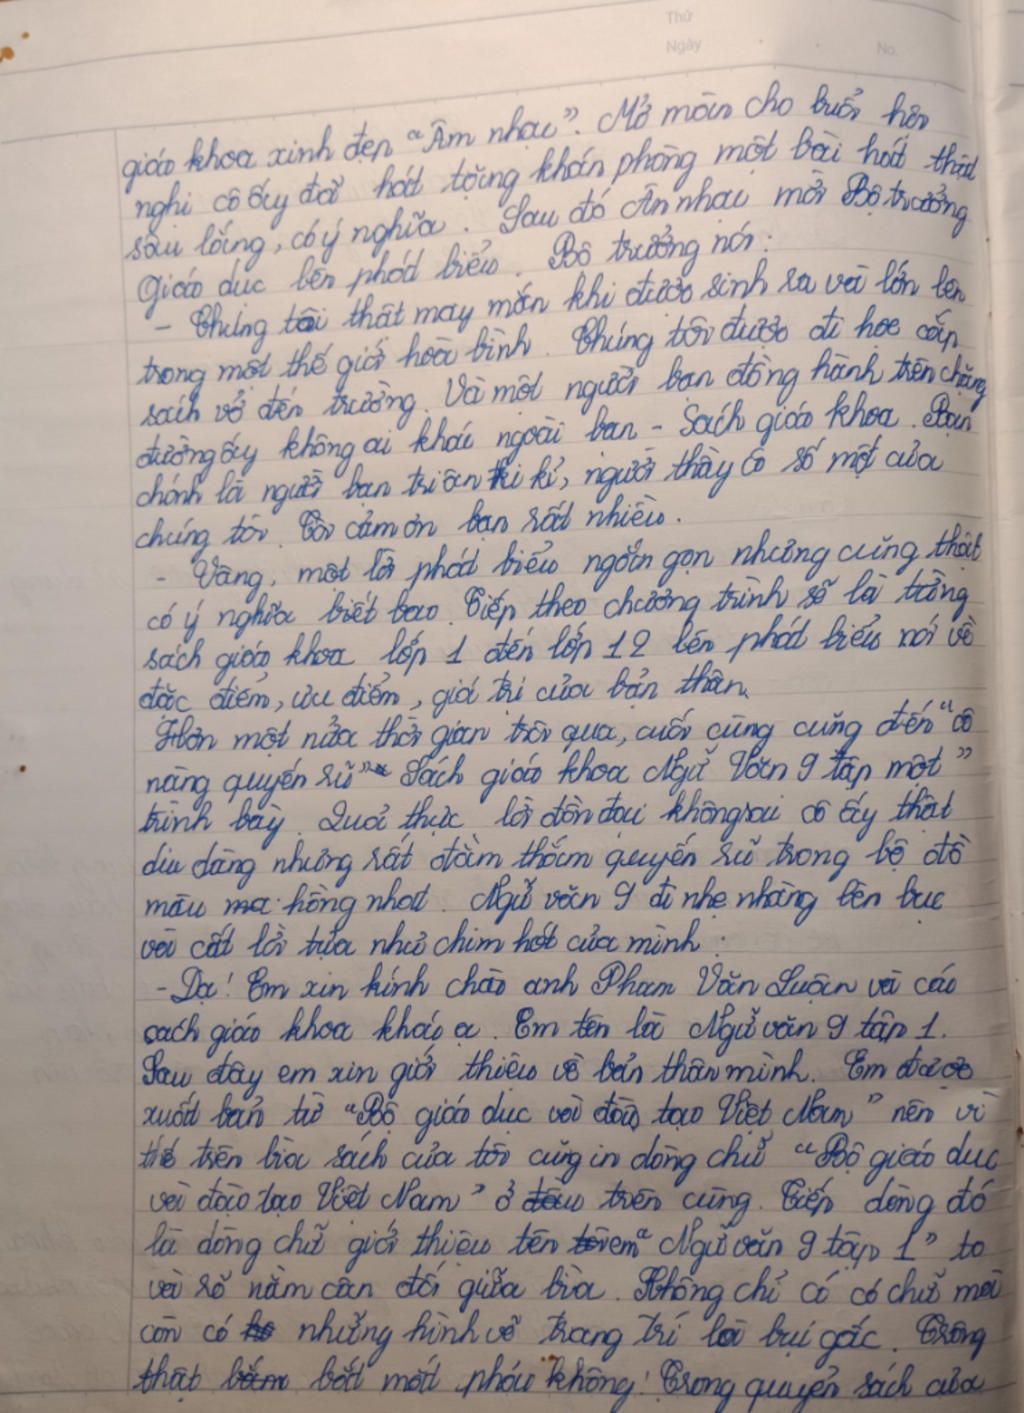 Thứ
Ngày No.
giáo khoa xinh đẹp "Âm nhạc". Mở màn cho buổi hội
nghị cô ấy đã hát tặng khán phòng một bài hát thật
sâu lắng, có ý nghĩa. Sau đó Âm nhạc mời Bộ trưởng
Giáo dục lên phát biểu. Bộ trưởng nói:
- Chúng tôi thật may mắn khi được sinh ra và lớn lên
trong một thế giới hoà bình. Chúng tôi được đi học cắp
sách vở đến trường. Và một người bạn đồng hành trên chặng
đường ấy không ai khác ngoài bạn - Sách giáo khoa. Bạn
chính là người bạn tri ân tri kỉ, người thầy cô số một của
chúng tôi. Tôi cảm ơn bạn rất nhiều.
- Vâng, một lời phát biểu ngắn gọn nhưng cũng thật
có ý nghĩa biết bao. Tiếp theo chương trình sẽ là từng
sách giáo khoa lớp 1 đến lớp 12 lên phát biểu nói về
đặc điểm, ưu điểm, giá trị của bản thân.
Hơn một nửa thời gian trôi qua, cuối cùng cũng đến "cô
nàng quyến rũ" Sách giáo khoa Ngữ Văn 9 tập một"
trình bày. Quả thực lời đồn đại không sai cô ấy thật
dịu dàng nhưng rất đằm thắm quyến rũ trong bộ đồ
màu hồng nhạt. Ngữ văn 9 đi nhẹ nhàng lên bục
và cất lời tựa như chim hót của mình:
- Dạ! Em xin kính chào anh Phạm Văn Luận và các
sách giáo khoa khác ạ. Em tên là Ngữ văn 9 tập 1.
Sau đây em xin giới thiệu về bản thân mình. Em được
xuất bản từ "Bộ giáo dục và đào tạo Việt Nam" nên vì
thế trên bìa sách của tôi cũng in dòng chữ "Bộ giáo dục
và đào tạo Việt Nam" ở trên cùng. Tiếp dòng đó
là dòng chữ giới thiệu tên em "Ngữ văn 9 tập 1" to
và rõ nằm cân đối giữa bìa. Không chỉ có có chữ mà
còn có những hình vẽ trang trí là bụi gấc. Trông
thật bắt mắt phải không! Trong quyển sách của